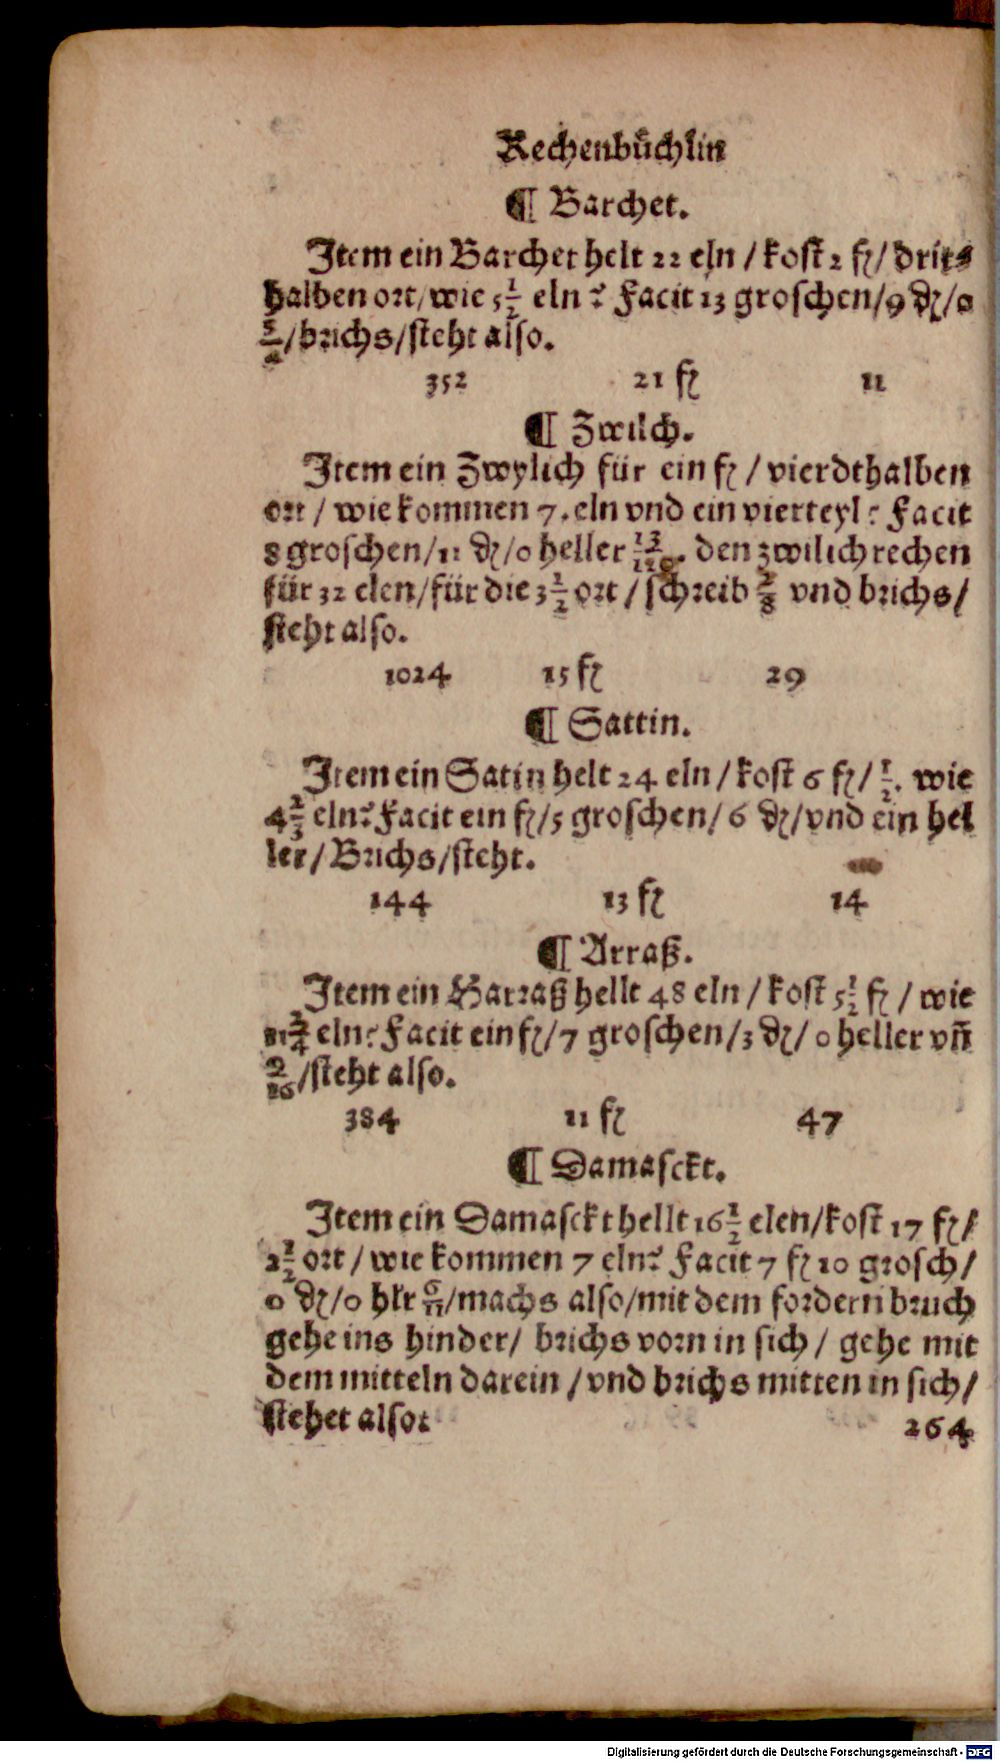 Rechenbuͤchlin
¶ Barchet.
Item ein Barchet helt 22 eln / kost 2 fl / drits
halben ort / wie 5 1/2 eln ? Facit 13 groschen / 9 ₰ / 0
/ brichs / steht also.
352 21 fl 11
¶ Zwilch.
Item ein Zwylich für ein fl / vierdthalben
ort / wie kommen 7. eln vnd ein vierteyl ? Facit
8 groschen / 11 ₰ / 0 heller . den zwilich rechen
für 32 elen / für die 3 1/2 ort / schreib vnd brichs /
steht also.
1024 15 fl 29
¶ Sattin.
Item ein Satin helt 24 eln / kost 6 fl / 1/2. wie
4 2/3 eln? Facit ein fl / 5 groschen / 6 ₰ / vnd ein hel
ler / Brichs / steht.
144 13 fl 14
¶ Arraß.
Item ein Harraß hellt 48 eln / kost 5 1/2 fl / wie
11 3/4 eln? Facit ein fl / 7 groschen / 3 ₰ / 0 heller vñ
9/16 / steht also.
384 11 fl 47
¶ Damasckt.
Item ein Damasckt hellt 16 1/2 elen / kost 17 fl /
2 1/2 ort / wie kommen 7 eln? Facit 7 fl 10 grosch /
0 ₰ / 0 hlr 6/11 / machs also / mit dem fordern bruch
gehe ins hinder / brichs vorn in sich / gehe mit
dem mitteln darein / vnd brichs mitten in sich /
stehet also:
264
Digitalisierung gefördert durch die Deutsche Forschungsgemeinschaft - DFG